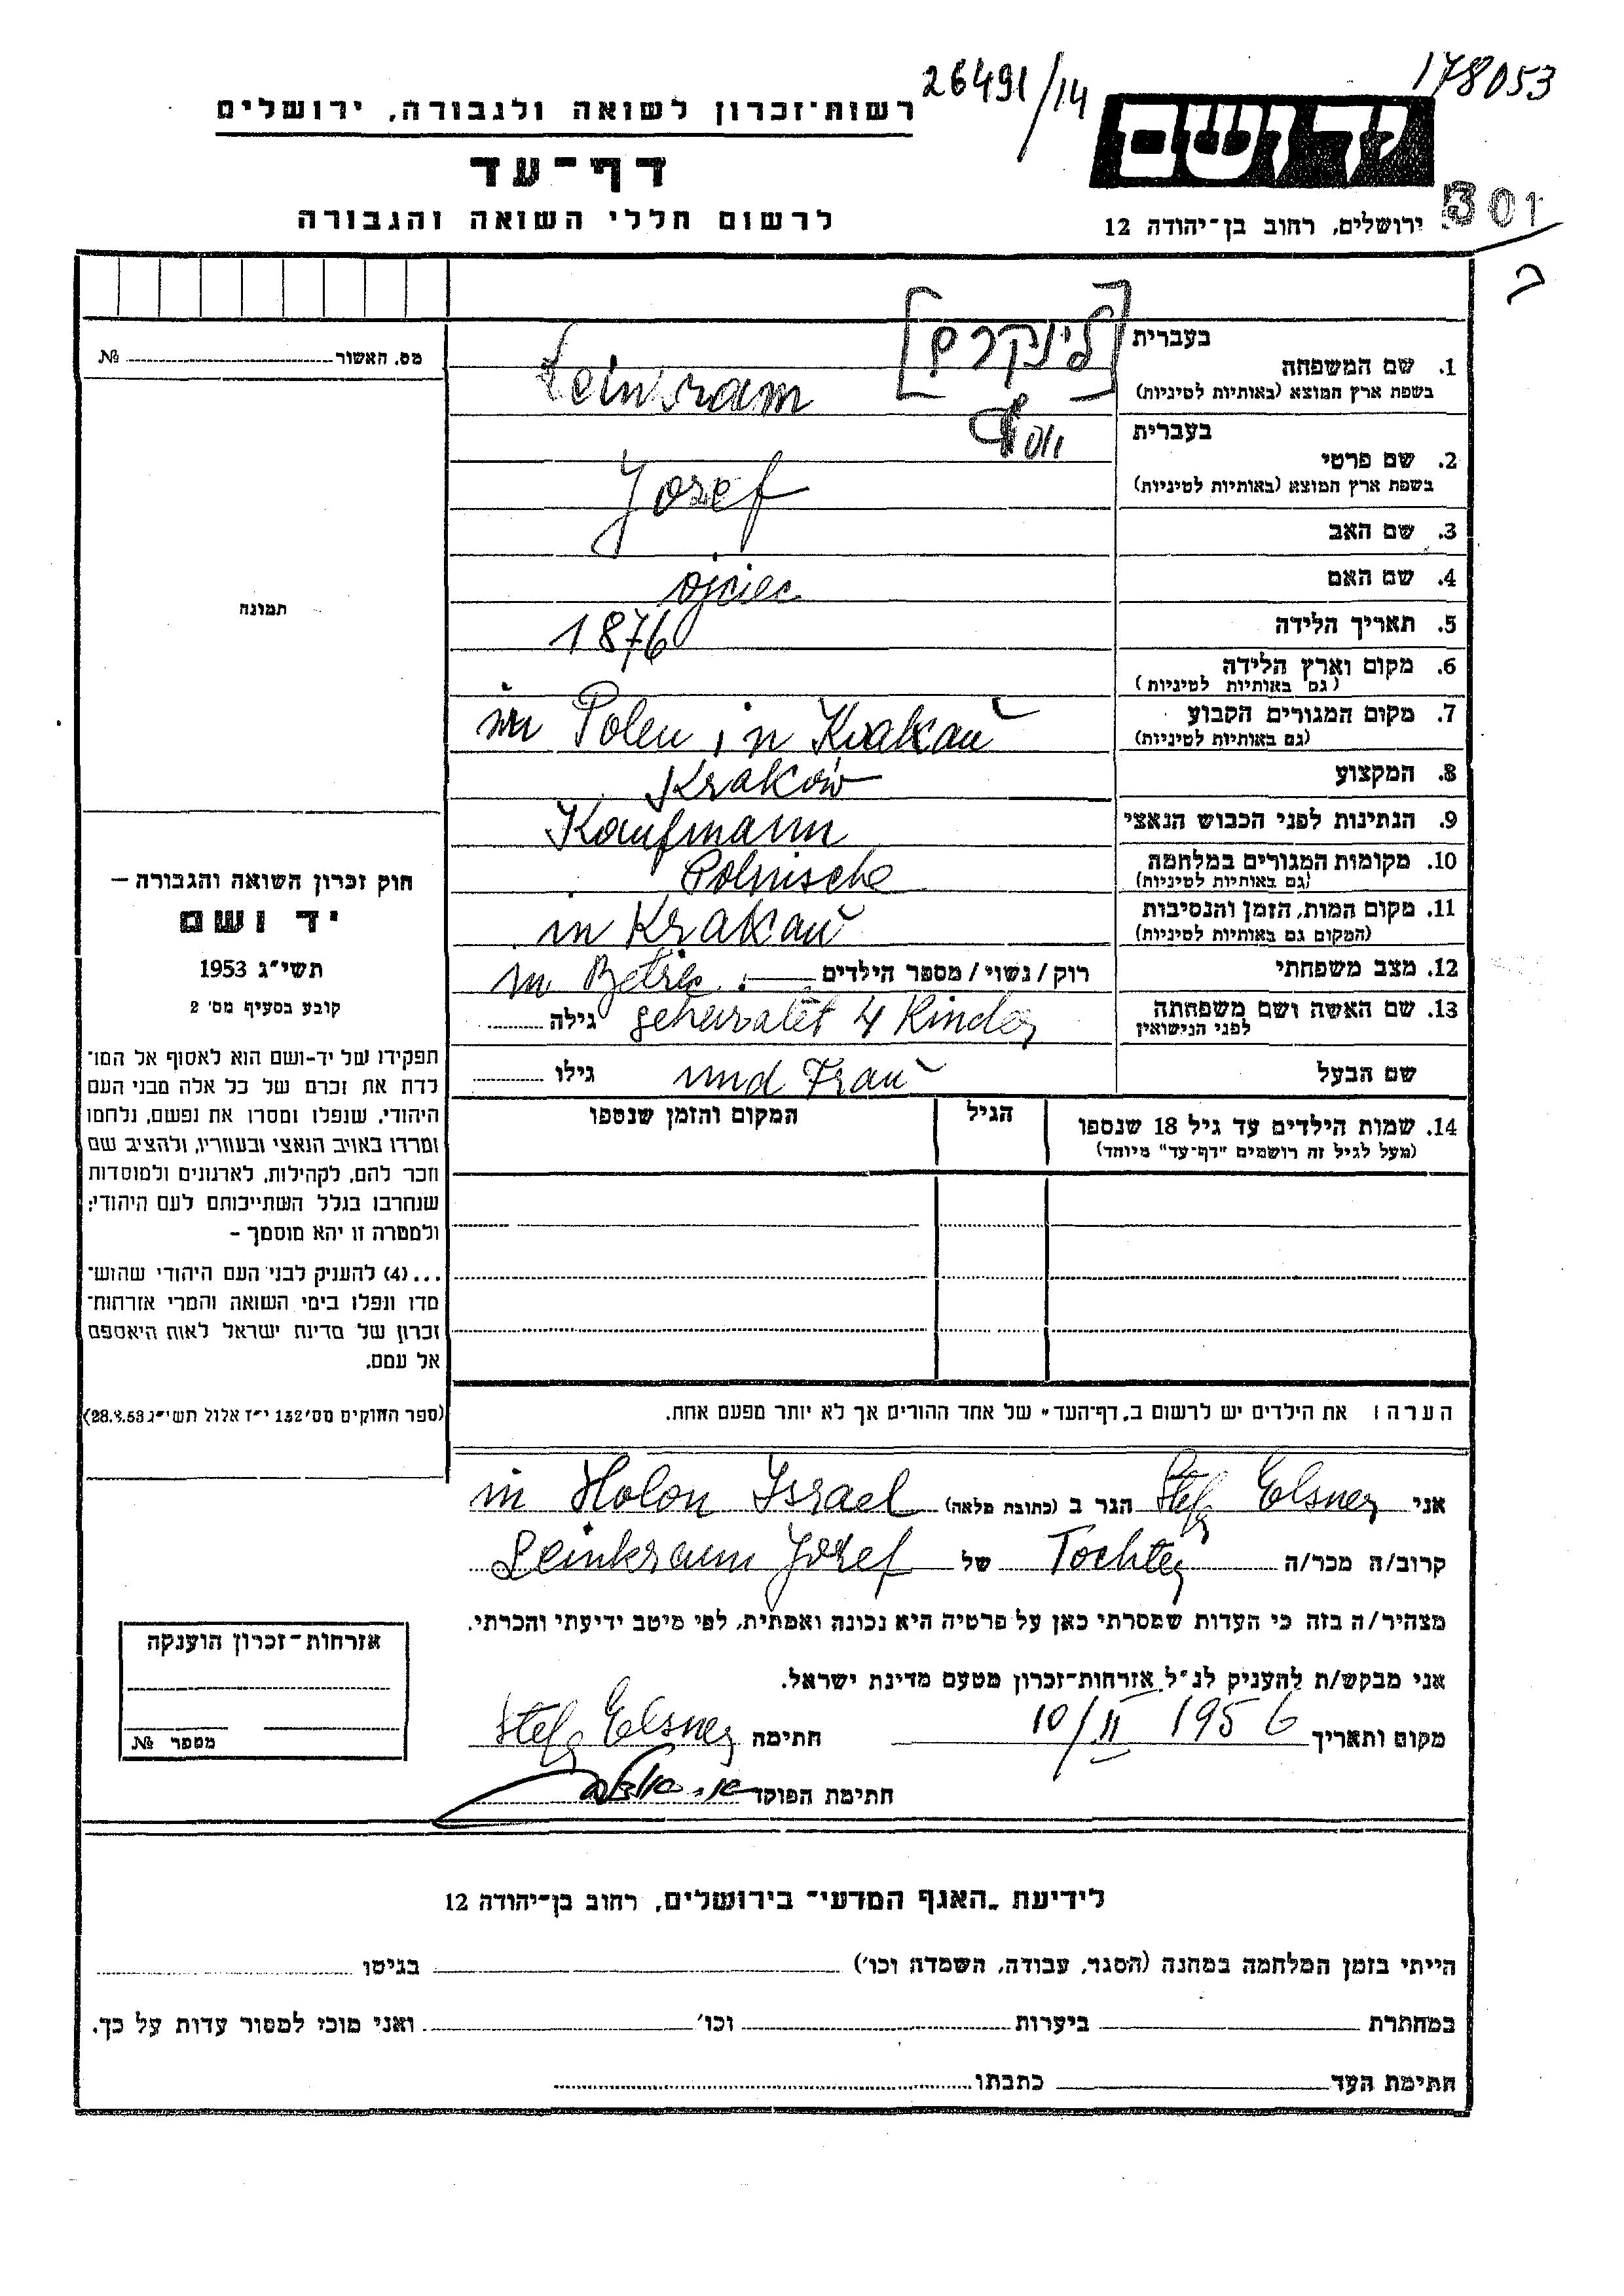 26491/14
178053
רשות־זכרון לשואה ולגבורה, ירושלים
ידושם
דף־עד
301
לרשום חללי השואה והגבורה
ירושלים, רחוב בן־יהודה 12
בעברית [לינקרם]
1. שם המשפחה
בשפת ארץ המוצא (באותיות לטיניות) Leinkram
מס. האשור № 
בעברית
2. שם פרטי
בשפת ארץ המוצא (באותיות לטיניות) Jozef
3. שם האב
4. שם האם ojciec
5. תאריך הלידה 1876
תמונה
6. מקום וארץ הלידה
(גם באותיות לטיניות)
7. מקום המגורים הקבוע in Polen in Krakau
(גם באותיות לטיניות)
8. המקצוע Kraków
9. הנתינות לפני הכבוש הנאצי Kaufmann
10. מקומות המגורים במלחמה Polnische
(גם באותיות לטיניות)
11. מקום המות, הזמן והנסיבות in Krakau
(המקום גם באותיות לטיניות)
12. מצב משפחתי רוק/נשוי/מספר הילדים in
13. שם האשה ושם משפחתה geheiratet 4 Kinder גילה
לפני הנישואין
שם הבעל und Frau גילו
14. שמות הילדים עד גיל 18 שנספו הגיל המקום והזמן שנספו
(מעל לגיל זה רושמים "דף־עד" מיוחד)
חוק זכרון השואה והגבורה –
יד ושם
תשי"ג 1953
קובע בסעיף מס' 2
תפקידו של יד-ושם הוא לאסוף אל המו־
לדת את זכרם של כל אלה מבני העם
היהודי, שנפלו ומסרו את נפשם, נלחמו
ומרדו באויב הנאצי ובעוזריו, ולהציב שם
וזכר להם, לקהילות, לארגונים ולמוסדות
שנחרבו בגלל השתייכותם לעם היהודי;
ולמטרה זו יהא מוסמך –
...(4) להעניק לבני העם היהודי שהוש־
מדו ונפלו בימי השואה והמרי אזרחות־
זכרון של מדינת ישראל לאות היאספם
אל עמם.
(ספר החוקים מס' 132 י"ז אלול תשי"ג 28.8.53)
הערה: את הילדים יש לרשום ב„דף־העד" של אחד ההורים אך לא יותר מפעם אחת.
אני Stefa Elsner הגר ב (כתובת מלאה) in Holon Israel
קרוב/ה מכר/ה Tochter של Leinkram Jozef
מצהיר/ה בזה כי העדות שמסרתי כאן על פרטיה היא נכונה ואמתית, לפי מיטב ידיעתי והכרתי.
אני מבקש/ת להעניק לנ"ל אזרחות־זכרון מטעם מדינת ישראל.
מקום ותאריך 10/II 1956 חתימה Stefa Elsner
חתימת הפוקד
אזרחות־זכרון הוענקה
מספר №
לידיעת „האגף המדעי" בירושלים, רחוב בן־יהודה 12
הייתי בזמן המלחמה במחנה (הסגר, עבודה, השמדה וכו') בגיטו
במחתרת ביערות וכו' ואני מוכן למסור עדות על כך.
חתימת העד כתבתו